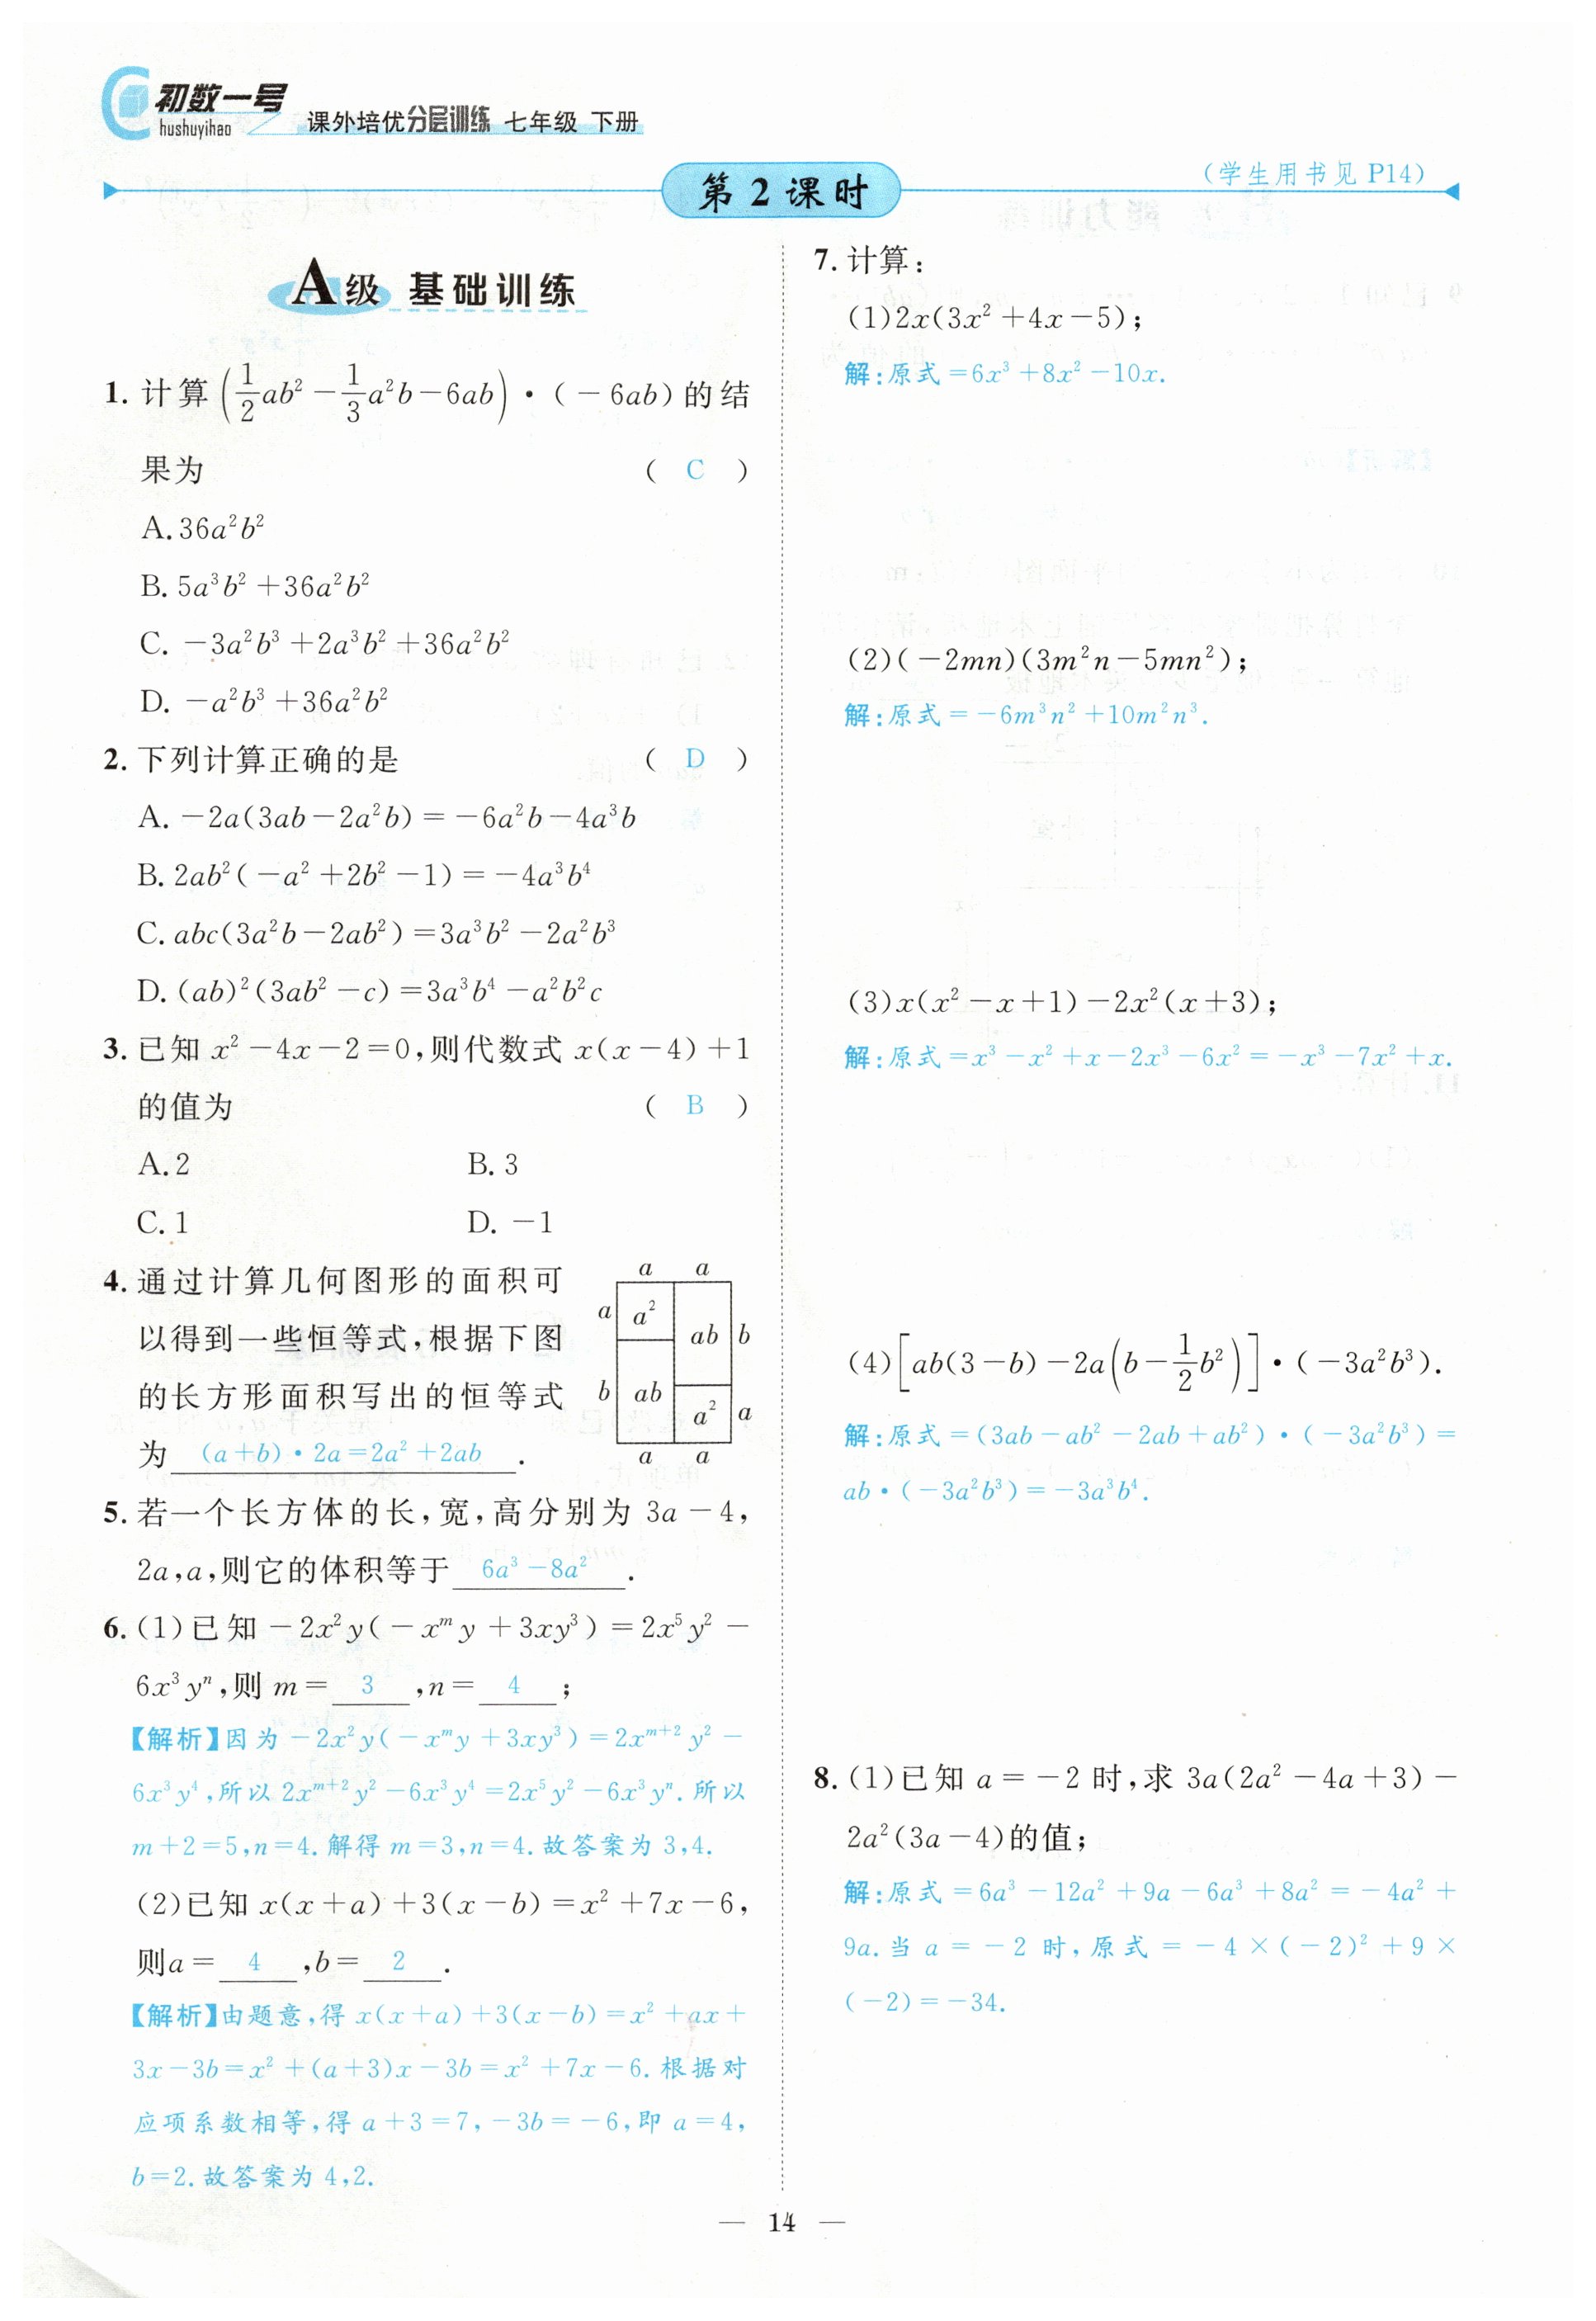 初数一号
hushuyihao
课外培优分层训练 七年级 下册
(学生用书见 P14)
第 2 课时
A级 基础训练
1. 计算(1/2ab²－1/3a²b－6ab)·(－6ab)的结
果为 ( C )
A. 36a²b²
B. 5a³b²＋36a²b²
C. －3a²b³＋2a³b²＋36a²b²
D. －a²b³＋36a²b²
2. 下列计算正确的是 ( D )
A. －2a(3ab－2a²b)＝－6a²b－4a³b
B. 2ab²(－a²＋2b²－1)＝－4a³b⁴
C. abc(3a²b－2ab²)＝3a³b²－2a²b³
D. (ab)²(3ab²－c)＝3a³b⁴－a²b²c
3. 已知 x²－4x－2＝0,则代数式 x(x－4)＋1
的值为 ( B )
A. 2 B. 3
C. 1 D. －1
4. 通过计算几何图形的面积可
以得到一些恒等式,根据下图
的长方形面积写出的恒等式
为 (a＋b)·2a＝2a²＋2ab .
a a
a a² ab b
b ab a² a
a a
5. 若一个长方体的长,宽,高分别为 3a－4,
2a,a,则它的体积等于 6a³－8a² .
6. (1)已知－2x²y(－xᵐy＋3xy³)＝2x⁵y²－
6x³yⁿ,则 m＝ 3 ,n＝ 4 ;
【解析】因为－2x²y(－xᵐy＋3xy³)＝2xᵐ⁺²y²－
6x³y⁴,所以 2xᵐ⁺²y²－6x³y⁴＝2x⁵y²－6x³yⁿ. 所以
m＋2＝5,n＝4. 解得 m＝3,n＝4. 故答案为 3,4.
(2)已知 x(x＋a)＋3(x－b)＝x²＋7x－6,
则a＝ 4 ,b＝ 2 .
【解析】由题意,得 x(x＋a)＋3(x－b)＝x²＋ax＋
3x－3b＝x²＋(a＋3)x－3b＝x²＋7x－6. 根据对
应项系数相等,得 a＋3＝7,－3b＝－6,即 a＝4,
b＝2. 故答案为 4,2.
7. 计算:
(1)2x(3x²＋4x－5);
解:原式＝6x³＋8x²－10x.
(2)(－2mn)(3m²n－5mn²);
解:原式＝－6m³n²＋10m²n³.
(3)x(x²－x＋1)－2x²(x＋3);
解:原式＝x³－x²＋x－2x³－6x²＝－x³－7x²＋x.
(4)[ab(3－b)－2a(b－1/2b²)]·(－3a²b³).
解:原式＝(3ab－ab²－2ab＋ab²)·(－3a²b³)＝
ab·(－3a²b³)＝－3a³b⁴.
8. (1)已知 a＝－2 时,求 3a(2a²－4a＋3)－
2a²(3a－4)的值;
解:原式＝6a³－12a²＋9a－6a³＋8a²＝－4a²＋
9a. 当 a＝－2 时,原式＝－4×(－2)²＋9×
(－2)＝－34.
— 14 —